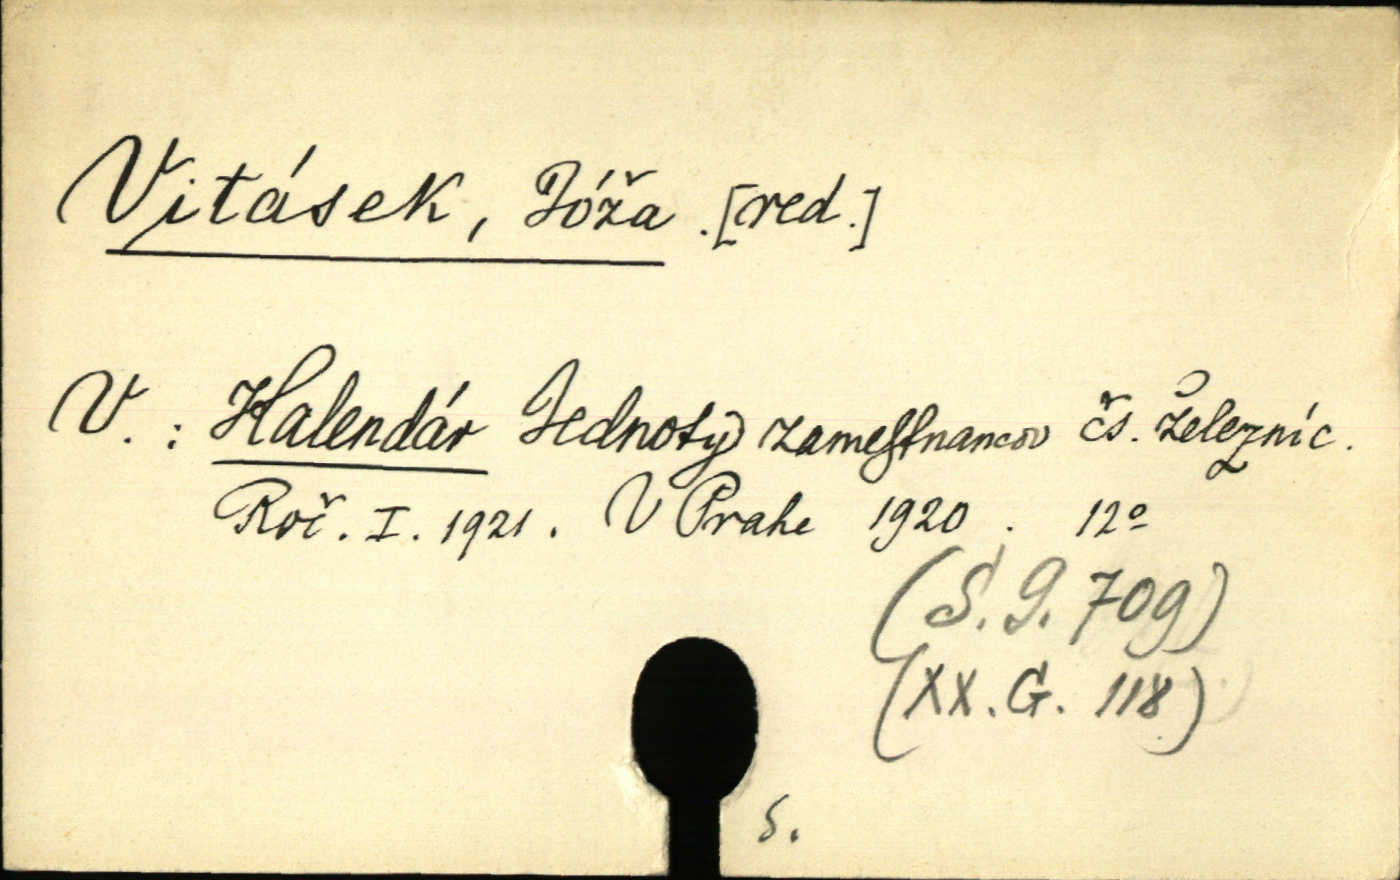 Vitásek, Jóža . [red.]
V. : Kalendár Jednoty zamestnancov čs. Železníc.
Roč. I. 1921. V Prahe 1920 . 12º
(S. G. 709)
(XX. G. 118)
S.